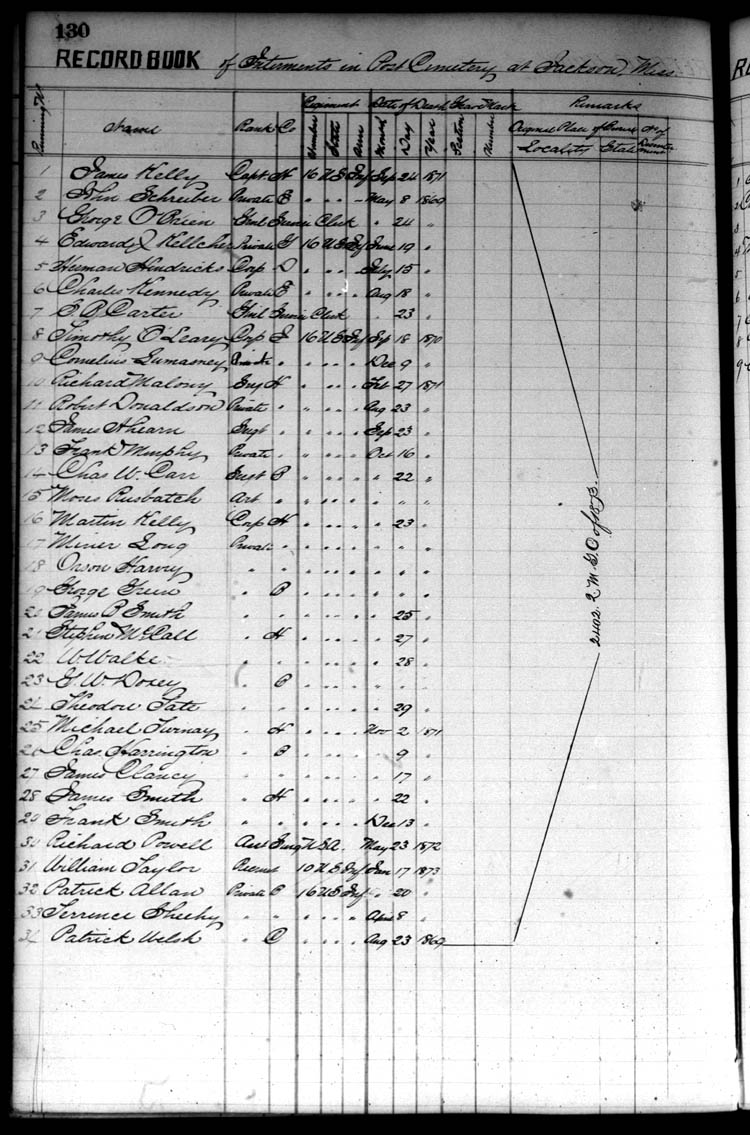 130
RECORD BOOK of Interments in Post Cemetery at Jackson, Miss
Regiment Date of Death Grave Mark Remarks
Name Rank Co Number State Arm Month Day Year Section Number Original Place of
Locality
1 James Kelly Capt H 16 U S Inf Sep 24 1871
2 John Schreiber Private E " " " - May 8 1869
3 George O'Brien Civil Service Clerk " 24 "
4 Edward J Kelleher Private G 16 U S Inf June 19 "
5 Herman Hindricks Corp D " " " July 15 "
6 Charles Kennedy Private E " " " Aug 18 "
7 Carter Civil Service Clerk " 23 "
8 Timothy O'Leary Corp I 16 U S Inf Sep 18 1870
9 Cornelius Private " " " " Dec 9 "
10 Richard Malony H " " " Feb 27 1871
11 Robert Donaldson Private " " " " Aug 23 "
12 James Ahearn Sergt " " " " Sep 23 "
13 Frank Murphy Private " " " " Oct 16 "
14 Chas W. Carr Sergt " " " " 22 "
15 Moses " " " " " " "
16 Martin Kelly Corp H " " " " 23 "
17 Miner Long Private " " " " " " "
18 Orson Harvey " " " " " " " "
19 George " " " " " " "
20 James P Smith " " " " " " 25 "
21 Stephen McCall " H " " " " 27 "
22 W. " " " " " " 28 "
23 G. W. Doxey " " " " " " "
24 Theodore Tate " " " " " " 29 "
25 Michael " H " " " Nov 2 1871
26 Chas Harrington " " " " " 9 "
27 James Clancy " " " " " " 17 "
28 James Smith " H " " " " 22 "
29 Frank Smith " " " " " Dec 13 "
30 Richard Powell Surg U.S.A. May 23 1872
31 William Taylor Recruit 10 U S Inf Jan 17 1873
32 Patrick Allan Private 16 U S Inf " 20 "
33 Terrence Sheehy " " " " " April 8 "
34 Patrick Welsh " C " " " Aug 23 1869
2402. Q.M.G.O of 1873.